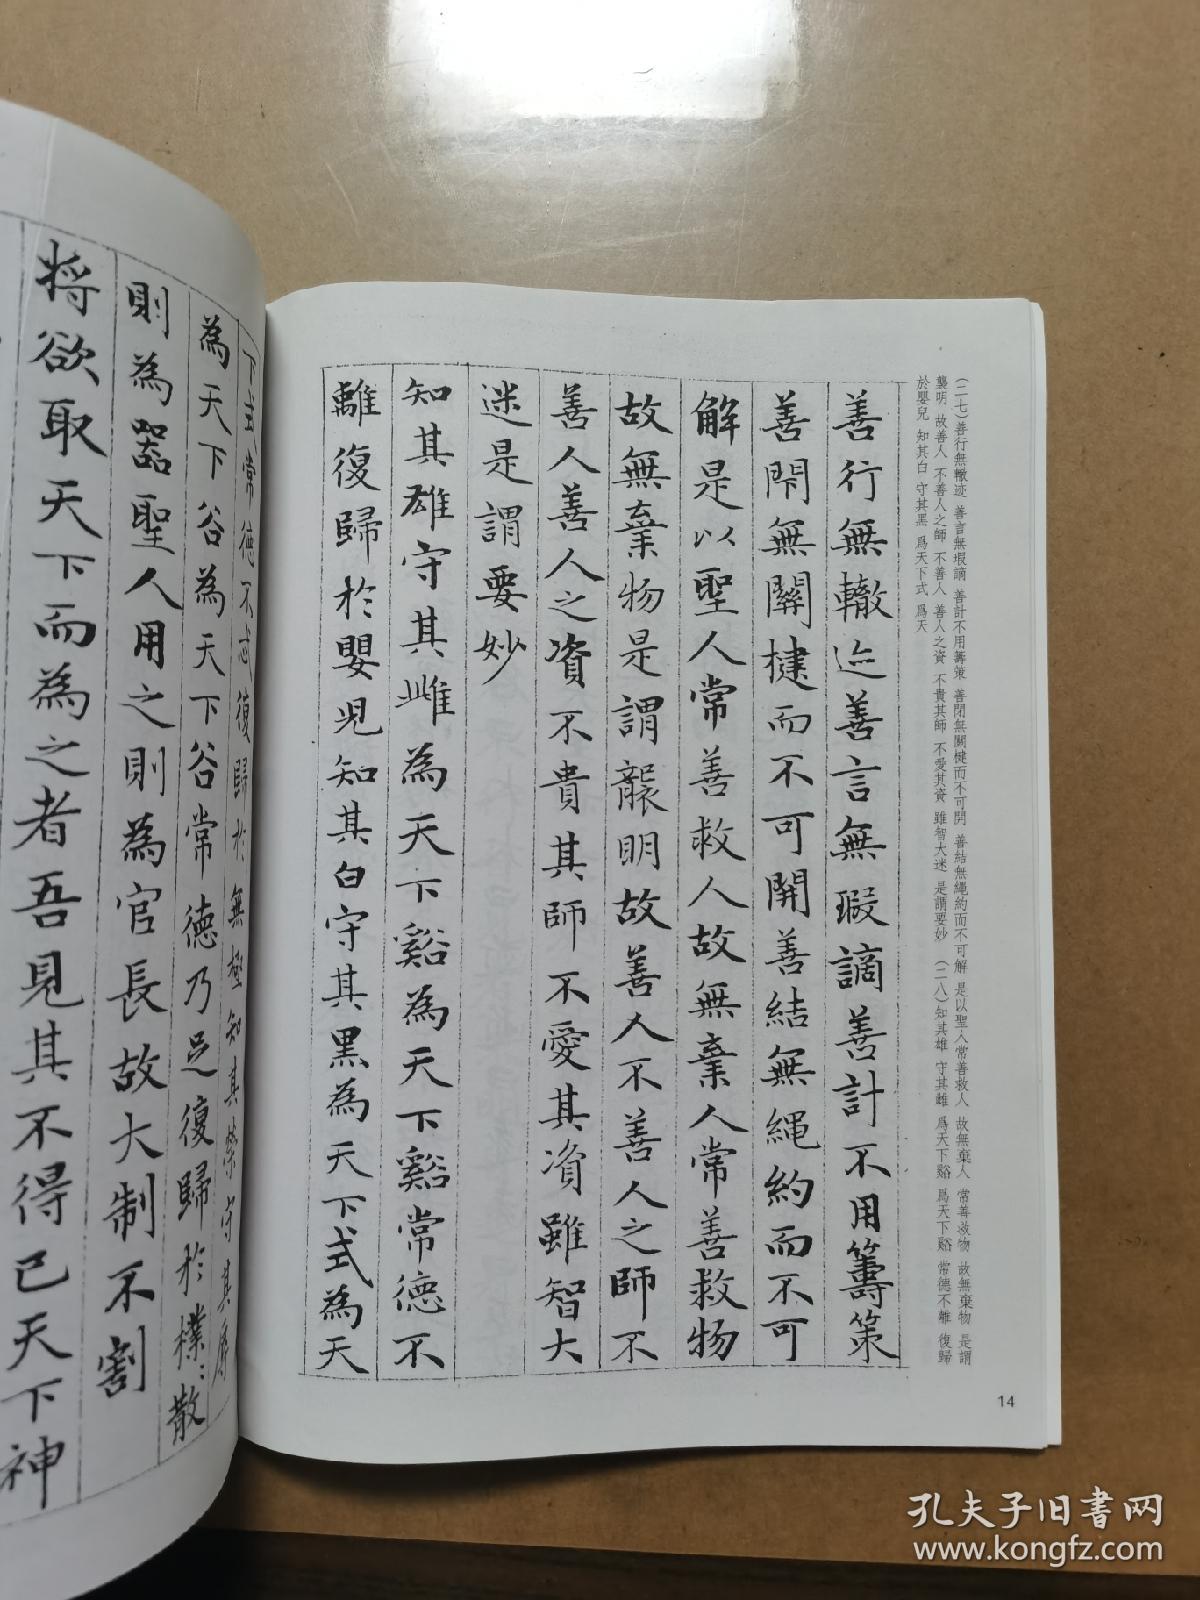 (二七)善行無轍迹 善言無瑕謫 善計不用籌策 善閉無關楗而不可開 善結無繩約而不可解 是以聖人常善救人 故無棄人 常善救物 故無棄物 是謂
襲明 故善人 不善人之師 不善人 善人之資 不貴其師 不愛其資 雖智大迷 是謂要妙 (二八)知其雄 守其雌 爲天下谿 爲天下谿 常德不離 復歸
於嬰兒 知其白 守其黑 爲天下式 爲天
善行無轍迹善言無瑕謫善計不用籌策
善閇無關楗而不可開善結無繩約而不可
解是以聖人常善救人故無棄人常善救物
故無棄物是謂襲明故善人不善人之師不
善人善人之資不貴其師不愛其資雖智大
迷是謂要妙
知其雄守其雌為天下谿為天下谿常德不
離復歸於嬰兒知其白守其黑為天下式為天
14
下式常德不忒復歸於無極知其榮守其辱
為天下谷為天下谷常德乃足復歸於樸〻散
則為器聖人用之則為官長故大制不割
將欲取天下而為之者吾見其不得已天下神
孔夫子旧书网
www.kongfz.com